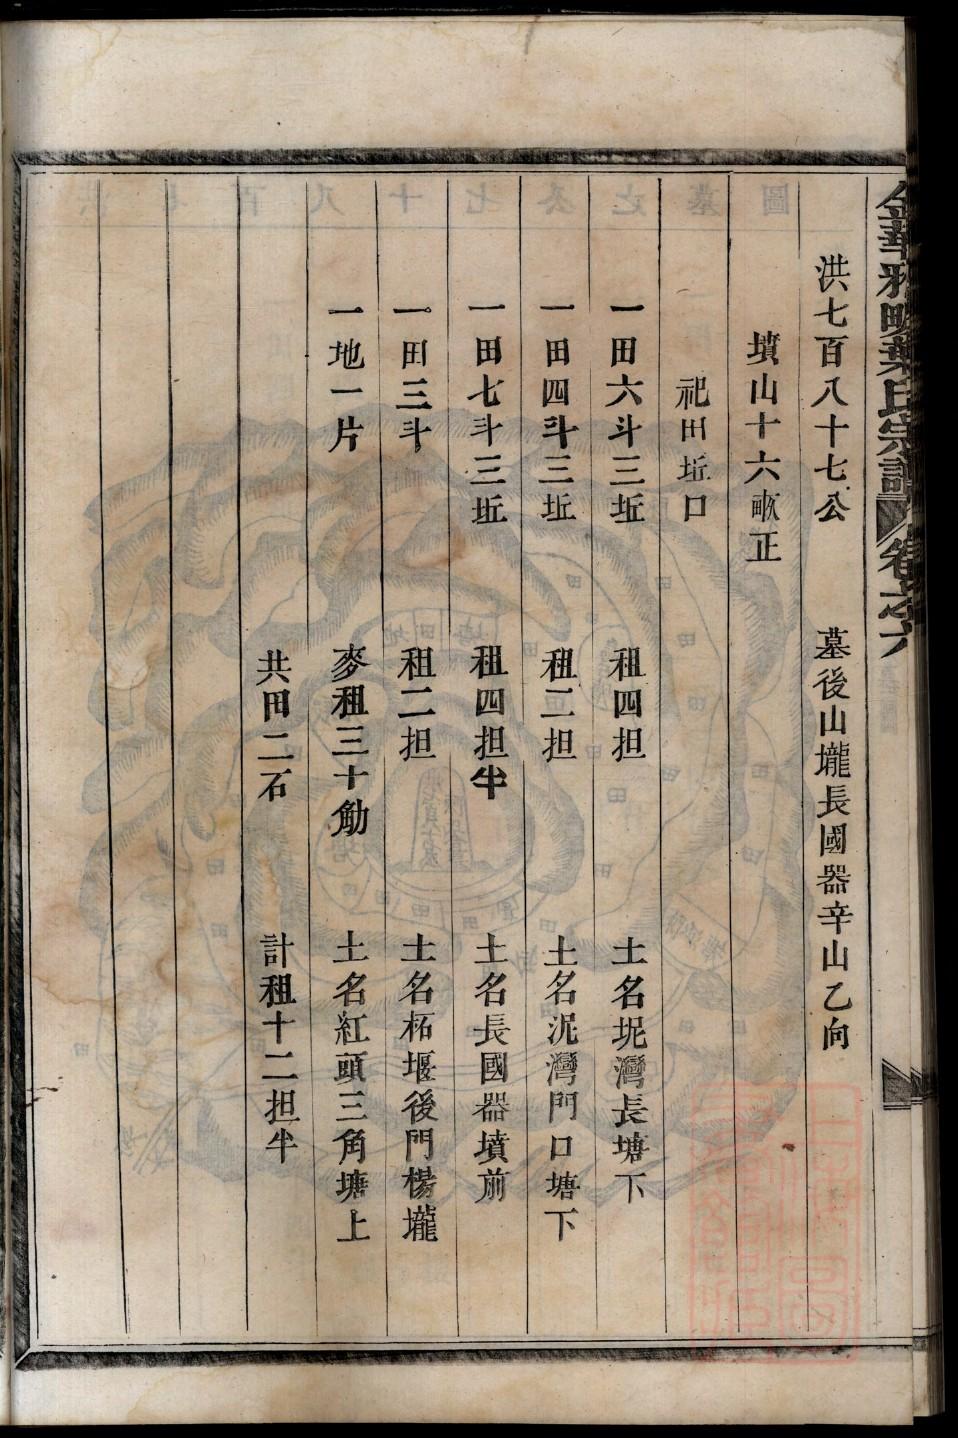 金華雅畈葉氏宗譜 卷之六
洪七百八十七公 墓後山壠長國器辛山乙向
墳山十六畝正
祀田坵口
一田六斗三坵 租四担 土名坭灣長塘下
一田四斗三坵 租二担 土名泥灣門口塘下
一田七斗三坵 租四担半 土名長國器墳前
一田三斗 租二担 土名柘堰後門楊壠
一地一片 麥租三十觔 土名紅頭三角塘上
共田二石 計租十二担半